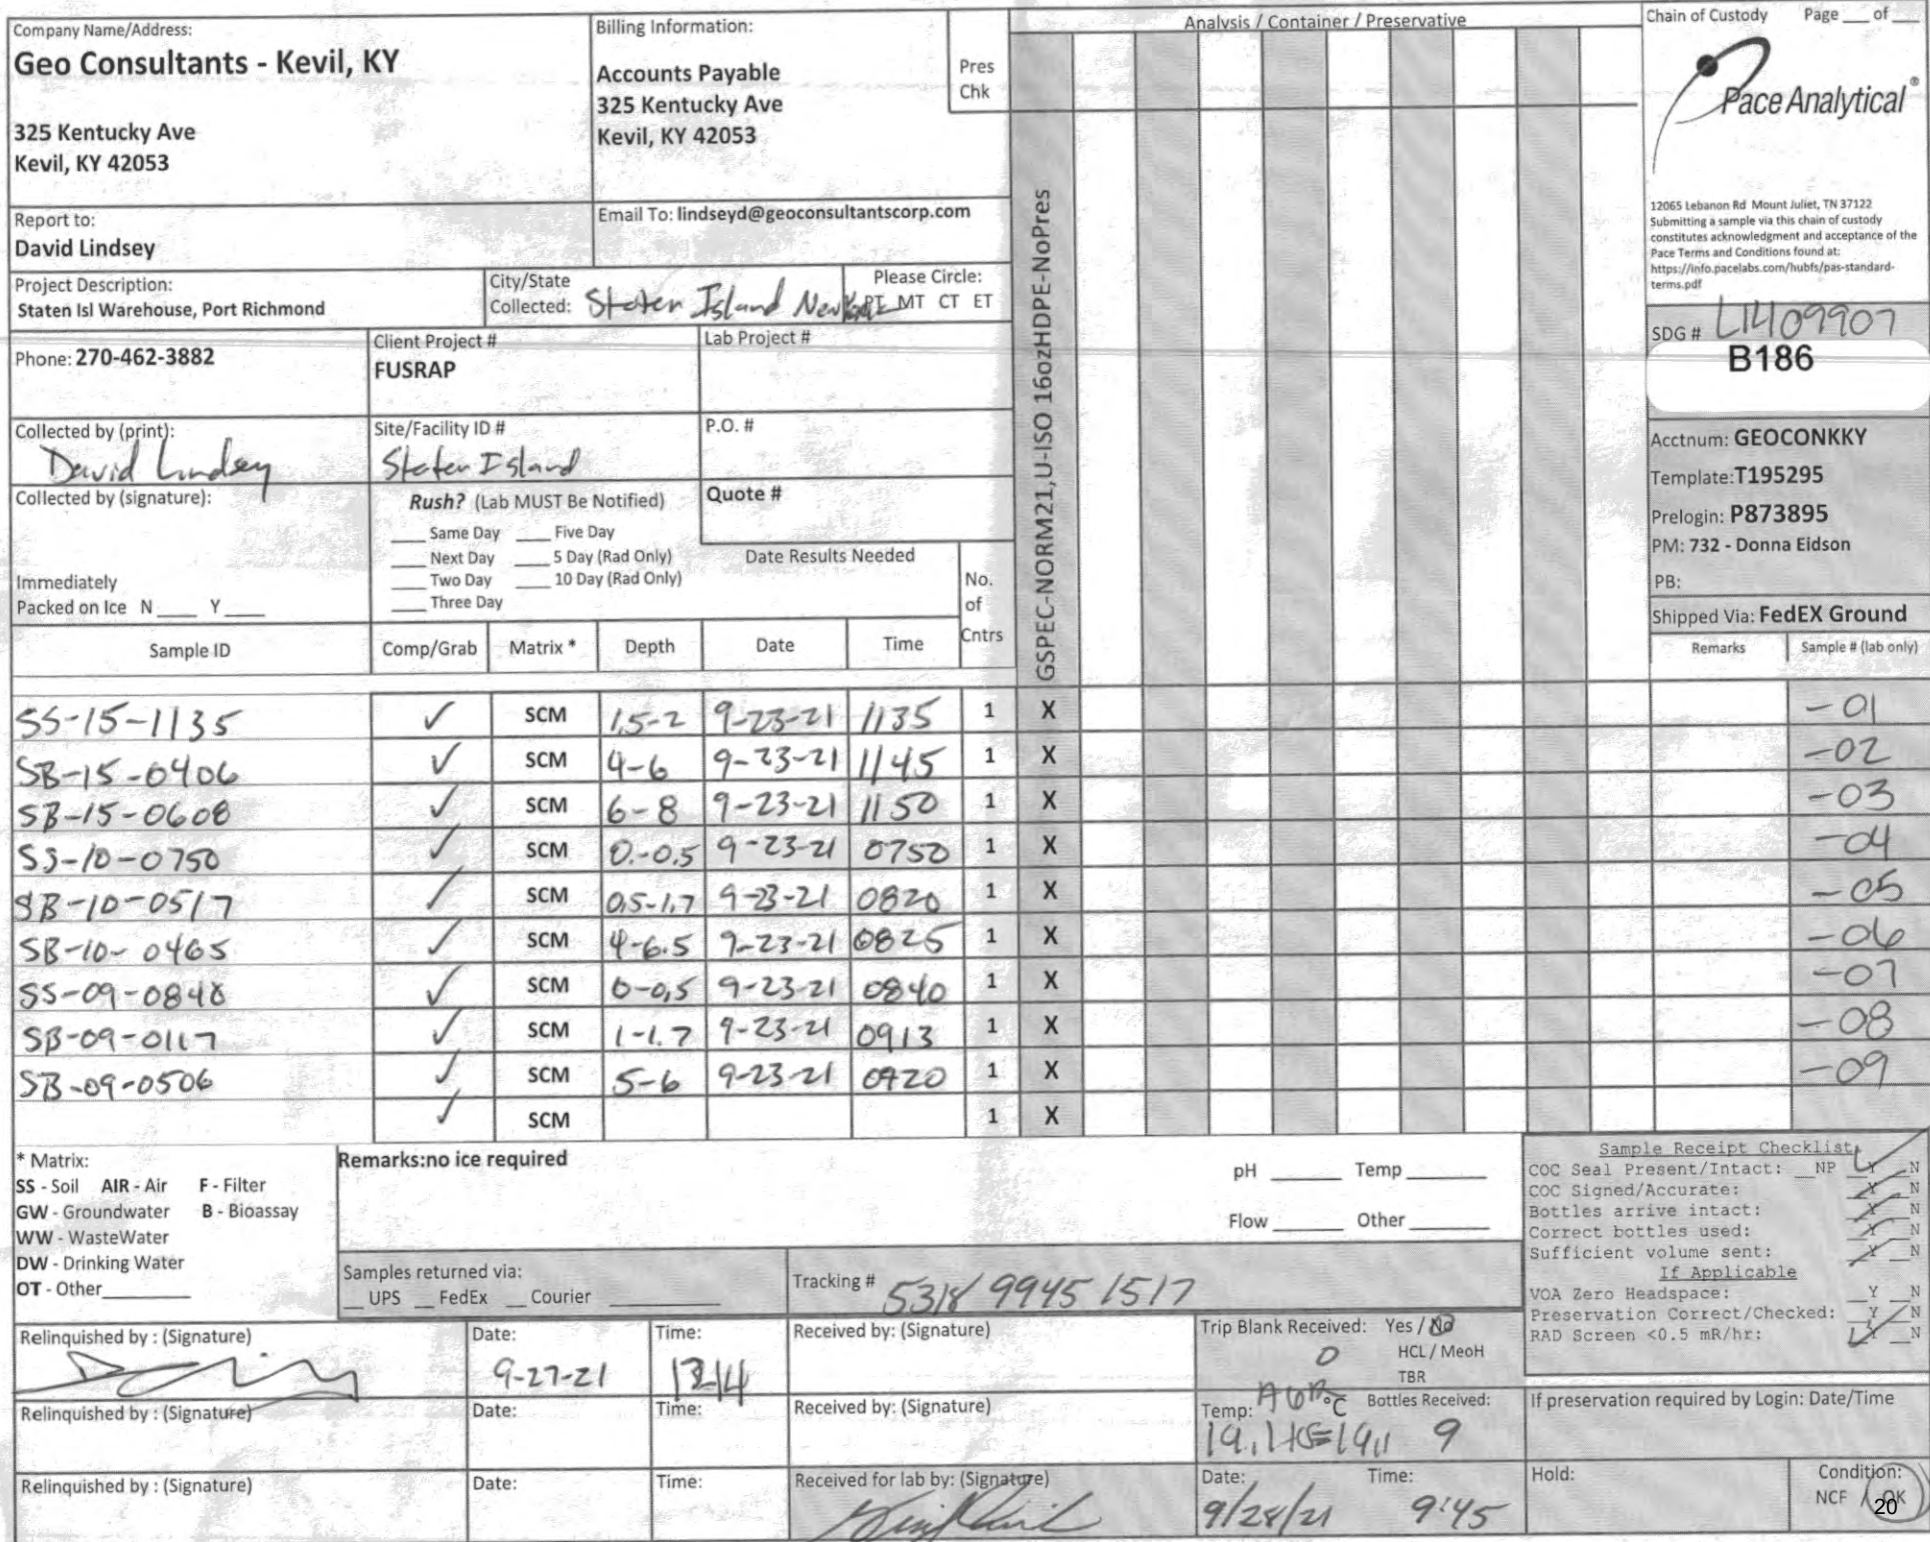 Company Name/Address:
Geo Consultants - Kevil, KY
325 Kentucky Ave
Kevil, KY 42053
Billing Information:
Accounts Payable
325 Kentucky Ave
Kevil, KY 42053
Pres
Chk
Analysis / Container / Preservative
Chain of Custody Page ___ of ___
Pace Analytical®
12065 Lebanon Rd Mount Juliet, TN 37122
Submitting a sample via this chain of custody
constitutes acknowledgment and acceptance of the
Pace Terms and Conditions found at:
https://info.pacelabs.com/hubfs/pas-standard-
terms.pdf
Report to:
David Lindsey
Email To: lindseyd@geoconsultantscorp.com
Project Description:
Staten Isl Warehouse, Port Richmond
City/State
Collected: Staten Island New York
Please Circle:
PT MT CT ET
SDG # L1409907
B186
Phone: 270-462-3882
Client Project #
FUSRAP
Lab Project #
Collected by (print):
David Lindsey
Site/Facility ID #
Staten Island
P.O. #
Acctnum: GEOCONKKY
Template:T195295
Prelogin: P873895
PM: 732 - Donna Eidson
PB:
Shipped Via: FedEX Ground
Collected by (signature):
Rush? (Lab MUST Be Notified)
___ Same Day ___ Five Day
___ Next Day ___ 5 Day (Rad Only)
___ Two Day ___ 10 Day (Rad Only)
___ Three Day
Quote #
Date Results Needed
Immediately
Packed on Ice N ___ Y ___
No.
of
Cntrs
GSPEC-NORM21,U-ISO 16ozHDPE-NoPres
Sample ID Comp/Grab Matrix * Depth Date Time Remarks Sample # (lab only)
SS-15-1135 ✓ SCM 1.5-2 9-23-21 1135 1 X -01
SB-15-0406 ✓ SCM 4-6 9-23-21 1145 1 X -02
SB-15-0608 ✓ SCM 6-8 9-23-21 1150 1 X -03
SS-10-0750 ✓ SCM 0.-0.5 9-23-21 0750 1 X -04
SB-10-0517 ✓ SCM 0.5-1.7 9-23-21 0820 1 X -05
SB-10-0465 ✓ SCM 4-6.5 9-23-21 0825 1 X -06
SS-09-0840 ✓ SCM 0-0.5 9-23-21 0840 1 X -07
SB-09-0117 ✓ SCM 1-1.7 9-23-21 0913 1 X -08
SB-09-0506 ✓ SCM 5-6 9-23-21 0920 1 X -09
✓ SCM 1 X
* Matrix:
SS - Soil AIR - Air F - Filter
GW - Groundwater B - Bioassay
WW - WasteWater
DW - Drinking Water
OT - Other___
Remarks:no ice required
pH ___ Temp ___
Flow ___ Other ___
Samples returned via:
__ UPS __ FedEx __ Courier ___
Tracking # 5318 9945 1517
Sample Receipt Checklist
COC Seal Present/Intact: __NP __Y __N
COC Signed/Accurate: __Y __N
Bottles arrive intact: __Y __N
Correct bottles used: __Y __N
Sufficient volume sent: __Y __N
If Applicable
VOA Zero Headspace: __Y __N
Preservation Correct/Checked: __Y __N
RAD Screen <0.5 mR/hr: __Y __N
Relinquished by : (Signature)
Date:
9-27-21
Time:
Received by: (Signature)
Trip Blank Received: Yes / No
0 HCL / MeoH
TBR
Relinquished by : (Signature)
Date:
Time:
Received by: (Signature)
Temp: °C Bottles Received:
9
If preservation required by Login: Date/Time
Relinquished by : (Signature)
Date:
Time:
Received for lab by: (Signature)
Date:
9/28/21
Time:
9:45
Hold:
Condition:
NCF / OK
20